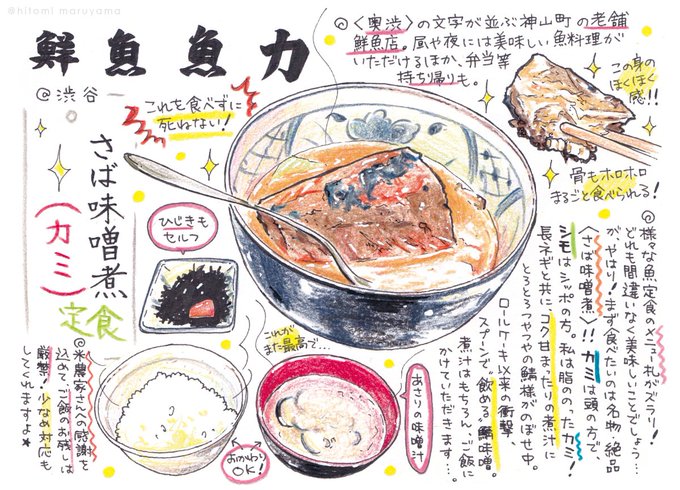 @hitomi maruyama
鮮魚 魚力
@渋谷
◎〈奥渋〉の文字が並ぶ神山町の老舗
鮮魚店。昼や夜には美味しい魚料理が
いただけるほか、弁当等
持ち帰りも。
これを食べずに
死ねない!
この身の
ほくほく
感!!
骨もホロホロ
まるごと食べられる!
さば味噌煮
(カミ)
定食
ひじきも
セルフ
◎様々な魚定食のメニュー札がズラリ!
どれも間違いなく美味しいことでしょう…
が、やはり!まず食べたいのは名物 絶品
〈さば味噌煮〉!!カミは頭の方で、
シモはシッポの方。私は脂ののったカミ!
長ネギと共にコク甘まったりの煮汁に
とろとろつやつやの鯖様がのぼせ中。
ロールケーキ以来の衝撃、
スプーンで。飲める鯖味噌。
煮汁はもちろん、ご飯に
かけていただきます…。
これが
また最高で…
あさりの味噌汁
おかわり
OK!
◎米農家さんの感謝を
込めて、ご飯のお残しは
厳禁!少なめ対応も
してくれますよ★